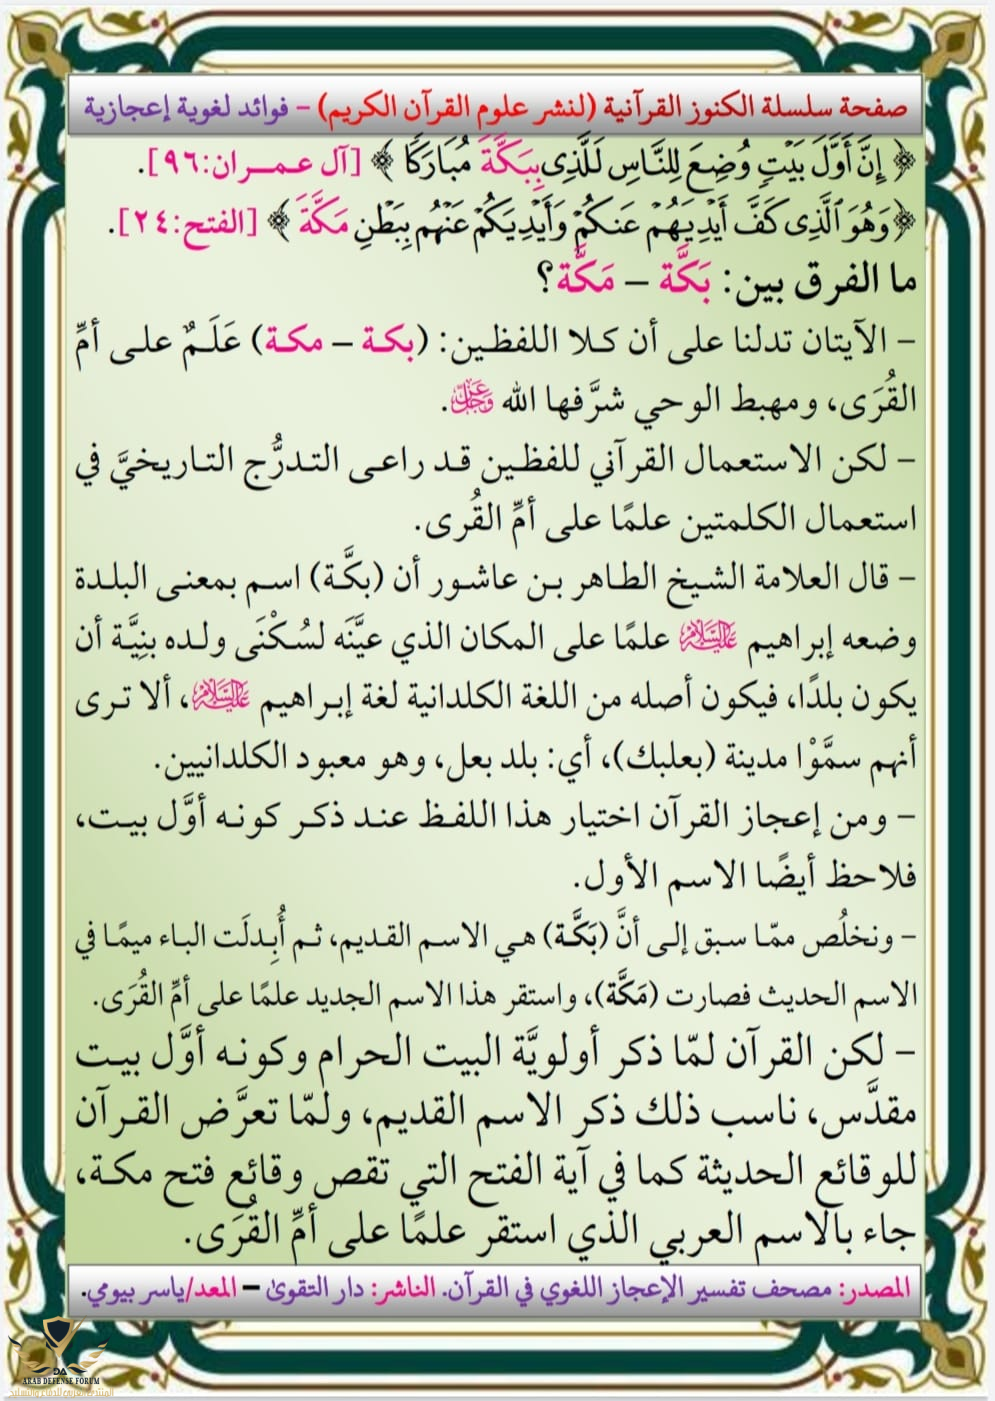 صفحة سلسلة الكنوز القرآنية (لنشر علوم القرآن الكريم) – فوائد لغوية إعجازية
﴿ إِنَّ أَوَّلَ بَيۡتٖ وُضِعَ لِلنَّاسِ لَلَّذِى بِبَكَّةَ مُبَارَكٗا ﴾ [آل عمــران:٩٦].
﴿ وَهُوَ ٱلَّذِى كَفَّ أَيۡدِيَهُمۡ عَنكُمۡ وَأَيۡدِيَكُمۡ عَنۡهُم بِبَطۡنِ مَكَّةَ ﴾ [الفتح:٢٤].
ما الفرق بين: بَكَّة – مَكَّة؟
– الآيتان تدلنا على أن كـلا اللفظـين: (بكـة – مكـة) عَلَـمٌ علـى أمِّ
القُرَى، ومهبط الوحي شرَّفها الله عَزَّ وَجَلَّ.
– لكن الاستعمال القرآني للفظـين قـد راعـى التـدرُّج التـاريخيَّ في
استعمال الكلمتين علمًا على أمِّ القُرى.
– قال العلامة الشـيخ الطـاهر بـن عاشـور أن (بكَّـة) اسـم بمعنـى البلـدة
وضعه إبراهيم عَلَيْهِ السَّلَام علمًا على المكان الذي عيَّنَه لسُكْنَى ولـده بنِيَّـة أن
يكون بلدًا، فيكون أصله من اللغة الكلدانية لغة إبـراهيم عَلَيْهِ السَّلَام، ألا تـرى
أنهم سمَّوْا مدينة (بعلبك)، أي: بلد بعل، وهو معبود الكلدانيين.
– ومن إعجاز القرآن اختيار هذا اللفـظ عنـد ذكـر كونـه أوَّل بيـت،
فلاحظ أيضًا الاسم الأول.
– ونخلُص ممّـا سـبق إلـى أنَّ (بَكَّـة) هـي الاسـم القـديم، ثـم أُبـدلَت البـاء ميمًـا في
الاسم الحديث فصارت (مَكَّة)، واستقر هذا الاسم الجديد علمًا على أمِّ القُرَى.
– لكن القرآن لمّا ذكر أولويَّة البيت الحرام وكونـه أوَّل بيـت
مقدَّس، ناسب ذلك ذكر الاسم القديم، ولمّا تعرَّض القـرآن
للوقائع الحديثة كما في آية الفتح التي تقص وقائع فتح مكـة،
جاء بالاسم العربي الذي استقر علمًا على أمِّ القُرَى.
المصدر: مصحف تفسير الإعجاز اللغوي في القرآن. الناشر: دار التقوىٰ – المعد/ياسر بيومي.
DA
ARAB DEFENSE FORUM